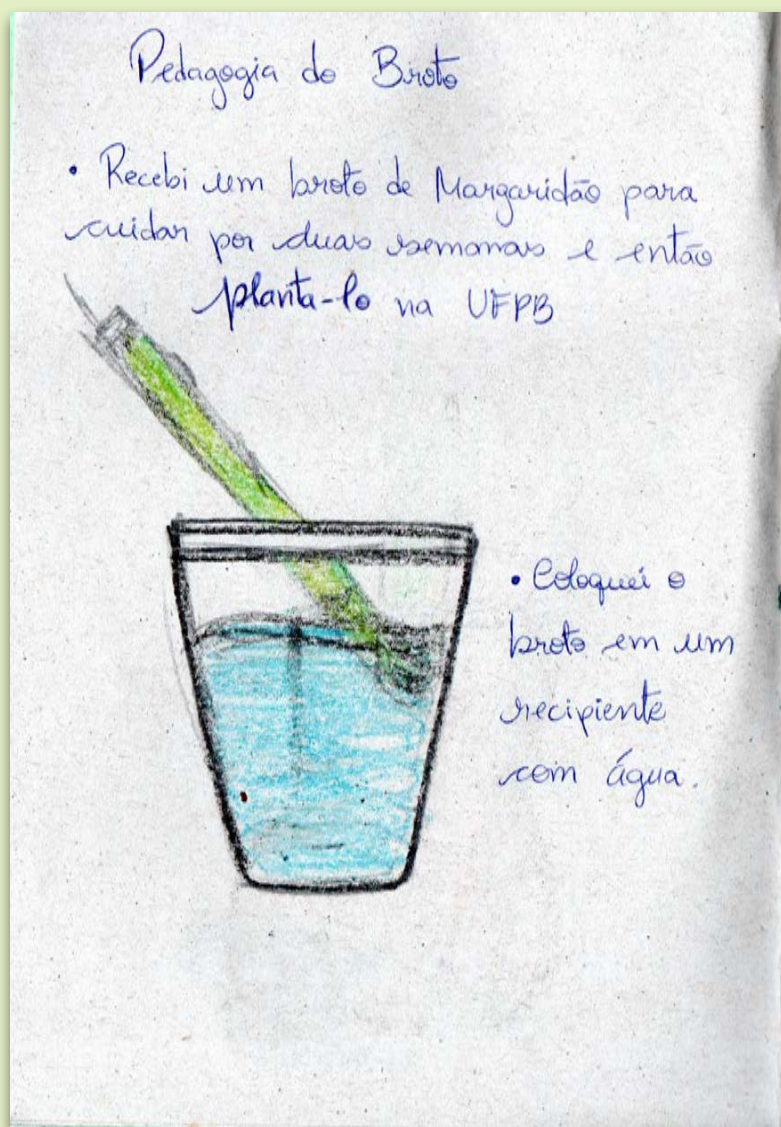 Pedagogia do Broto
• Recebi um broto de Margaridão para
cuidar por duas semanas e então
planta-lo na UFPB
• Coloquei o
broto em um
recipiente
com água.